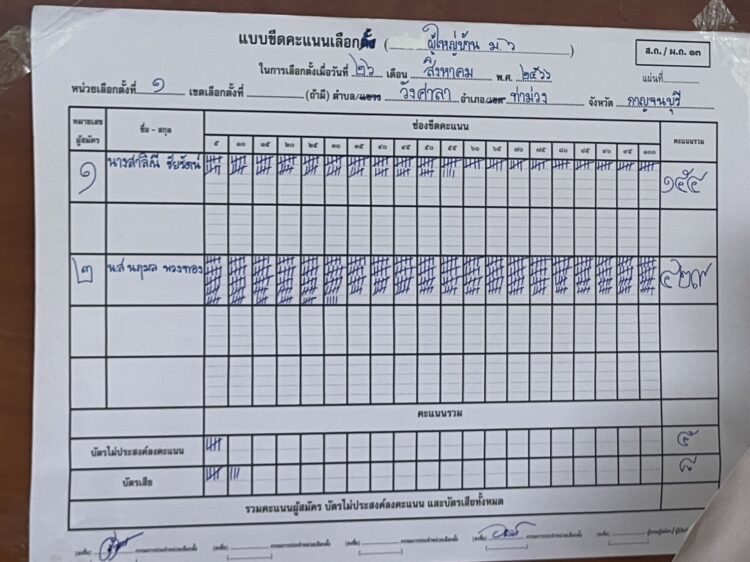 แบบขีดคะแนนเลือกตั้ง ( ผู้ใหญ่บ้าน ม.๖ )
ส.ถ. / ผ.ถ. ๑๓
ในการเลือกตั้งเมื่อวันที่ ๒๖ เดือน สิงหาคม พ.ศ. ๒๕๖๖
แผ่นที่
หน่วยเลือกตั้งที่ ๑ เขตเลือกตั้งที่ (ถ้ามี) ตำบล/แขวง วังศาลา อำเภอ/เขต ท่าม่วง จังหวัด กาญจนบุรี
หมายเลขผู้สมัคร ชื่อ - สกุล ช่องขีดคะแนน คะแนนรวม
๕ ๑๐ ๑๕ ๒๐ ๒๕ ๓๐ ๓๕ ๔๐ ๔๕ ๕๐ ๕๕ ๖๐ ๖๕ ๗๐ ๗๕ ๘๐ ๘๕ ๙๐ ๙๕ ๑๐๐
๑ นางสาลิณี ชัยรัตน์ ๑๕๔
๒ น.ส นฤมล พวงทอง ๔๒๙
คะแนนรวม
บัตรไม่ประสงค์ลงคะแนน ๕
บัตรเสีย ๘
รวมคะแนนผู้สมัคร บัตรไม่ประสงค์ลงคะแนน และบัตรเสียทั้งหมด
(ลงชื่อ) กรรมการประจำหน่วยเลือกตั้ง (ลงชื่อ) กรรมการประจำหน่วยเลือกตั้ง (ลงชื่อ) กรรมการประจำหน่วยเลือกตั้ง (ลงชื่อ) กรรมการประจำหน่วยเลือกตั้ง (ลงชื่อ)